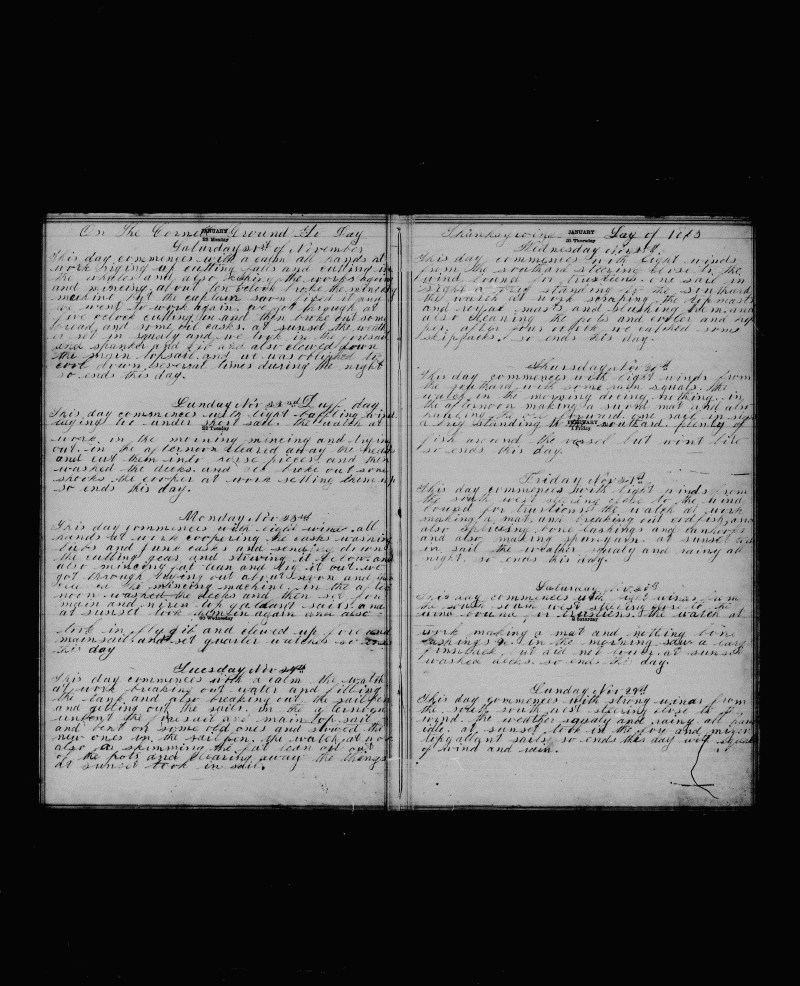 On The Corner Ground To Day
JANUARY
22 Monday
Saturday 21st of November
This day commences with a calm all hands at
work riging up cutting falls and cutting in
the whales and also fixing the works again
and mincing about ten oclock broke the mincing
machine but the captain soon fixed it and
we went to work again. we got through at
five oclock cutting in and then broke out some
bread and some oil casks. at sunset the weath
er set in squaly and we took in the
and spanker and jib and also clewed down
the topsail and we was obliged to
down several times during the night
so ends this day.
Sunday Nov 22nd day
This day commences with light baffling winds
laying too under short sail. the watch at
23 Tuesday
work in the morning mincing and trying
out. in the afternoon cleared away the heads
and cut them into horse pieces and then
washed the decks. and broke out some
shooks the cooper at work setting them up
so ends this day.
Monday Nov 23rd
This day commences with light winds all
hands at work coopering the casks washing
tubs and junk casks and sending down
also mincing fat lean and try it out. we
got through trying out about noon and
the mincing machine. in the after
noon washed the decks and then set fore
main and mizen top galant sails and
at sunset took them in again and also
24 Wednesday
took in fly gib and clewed up fore and
mainsail and set quarter watches so ends
this day
Tuesday Nov 24th
This day commences with a calm the watch
at work breaking out water and filling
the tank and also breaking out the sail pen
and getting out the sails. in the afternoon
unbent the foresail and main top sail
and bent on some old ones and stowed the
new ones in the sail pen. the watch at work
also skimming the fat lean out
of the pots and clearing away the things
at sunset took in sail.
Thanksgiving Day of 1863
JANUARY
31 Thursday
Wednesday Nov 25th
This day commences with light winds
from the southard steering close to the
wind bound for trustions. one sail in
sight a brig standing to the southard
the watch at work scraping the topmasts
and royal masts and slushing them and
also cleaning the pots and cooler and
after four oclock we catched some
skipjacks. so ends this day.
Thursday Nov 26th
This day commences with light winds from
the southard with some rain squals. the
watch in the morning doing nothing. in
the afternoon making a sword mat and also
hauling the forward one sail in sight
a brig standing to the southard. plenty of
FEBRUARY
1 Friday
fish around the vessel but wont bite
so ends this day.
Friday Nov 27th
This day commences with light winds from
the south west steering close to the wind
bound for trustions the watch at work
making a mat and breaking out codfish and
also splicing bone lashings and canhooks
and also making spunyarn. at sunset took
in sail the weather squaly and rainy at
night. so ends this day.
Saturday Nov 28th
This day commences with light winds from
the south south west steering close to the
wind bound for trustions. the watch at
2 Saturday
work making a mat and netting bone
lashings &c. in the morning saw a large
finnback. at did not lower. at sunset
washed decks. so ends this day.
Sunday Nov 29th
This day commences with strong winds from
the south south west steering close to the
wind. the weather squaly and rainy all hands
idle. at sunset took in the fore and mizen
top galant sails. so ends this day with squals
of wind and rain.